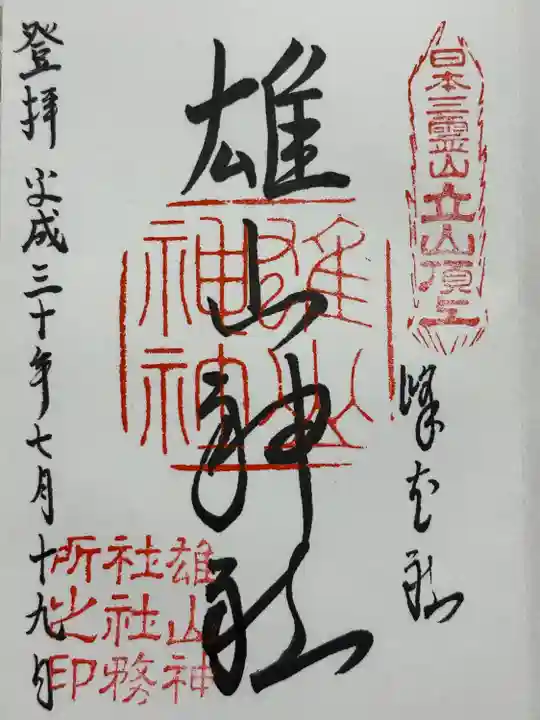 日本三霊山
立山頂上
峰本社
雄山神社
雄山
神社
雄山神
社社務
所之印
登拝 平成三十年七月十九日